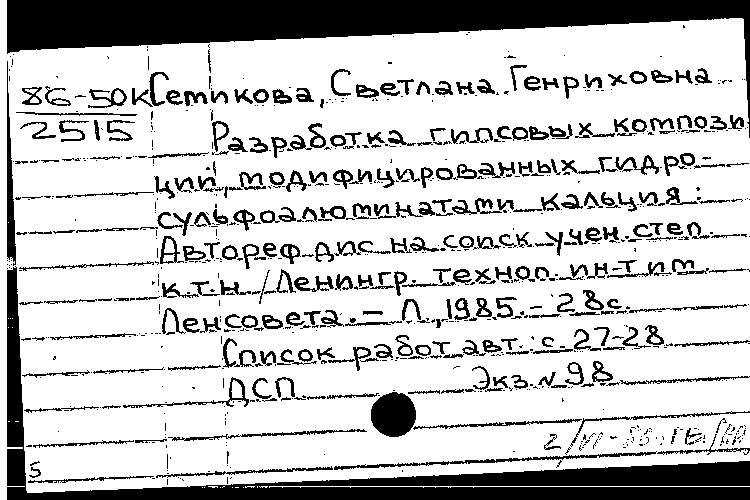 86-50К Семикова, Светлана Генриховна
2515 Разработка гипсовых компози
ций, модифицированных гидро-
сульфоалюминатами кальция:
Автореф дис на соиск учен. степ.
к.т.н / Ленингр. технол. ин-т им.
Ленсовета. – Л., 1985. – 28 с.
Список работ авт.: с. 27-28
ДСП Экз. № 98
5